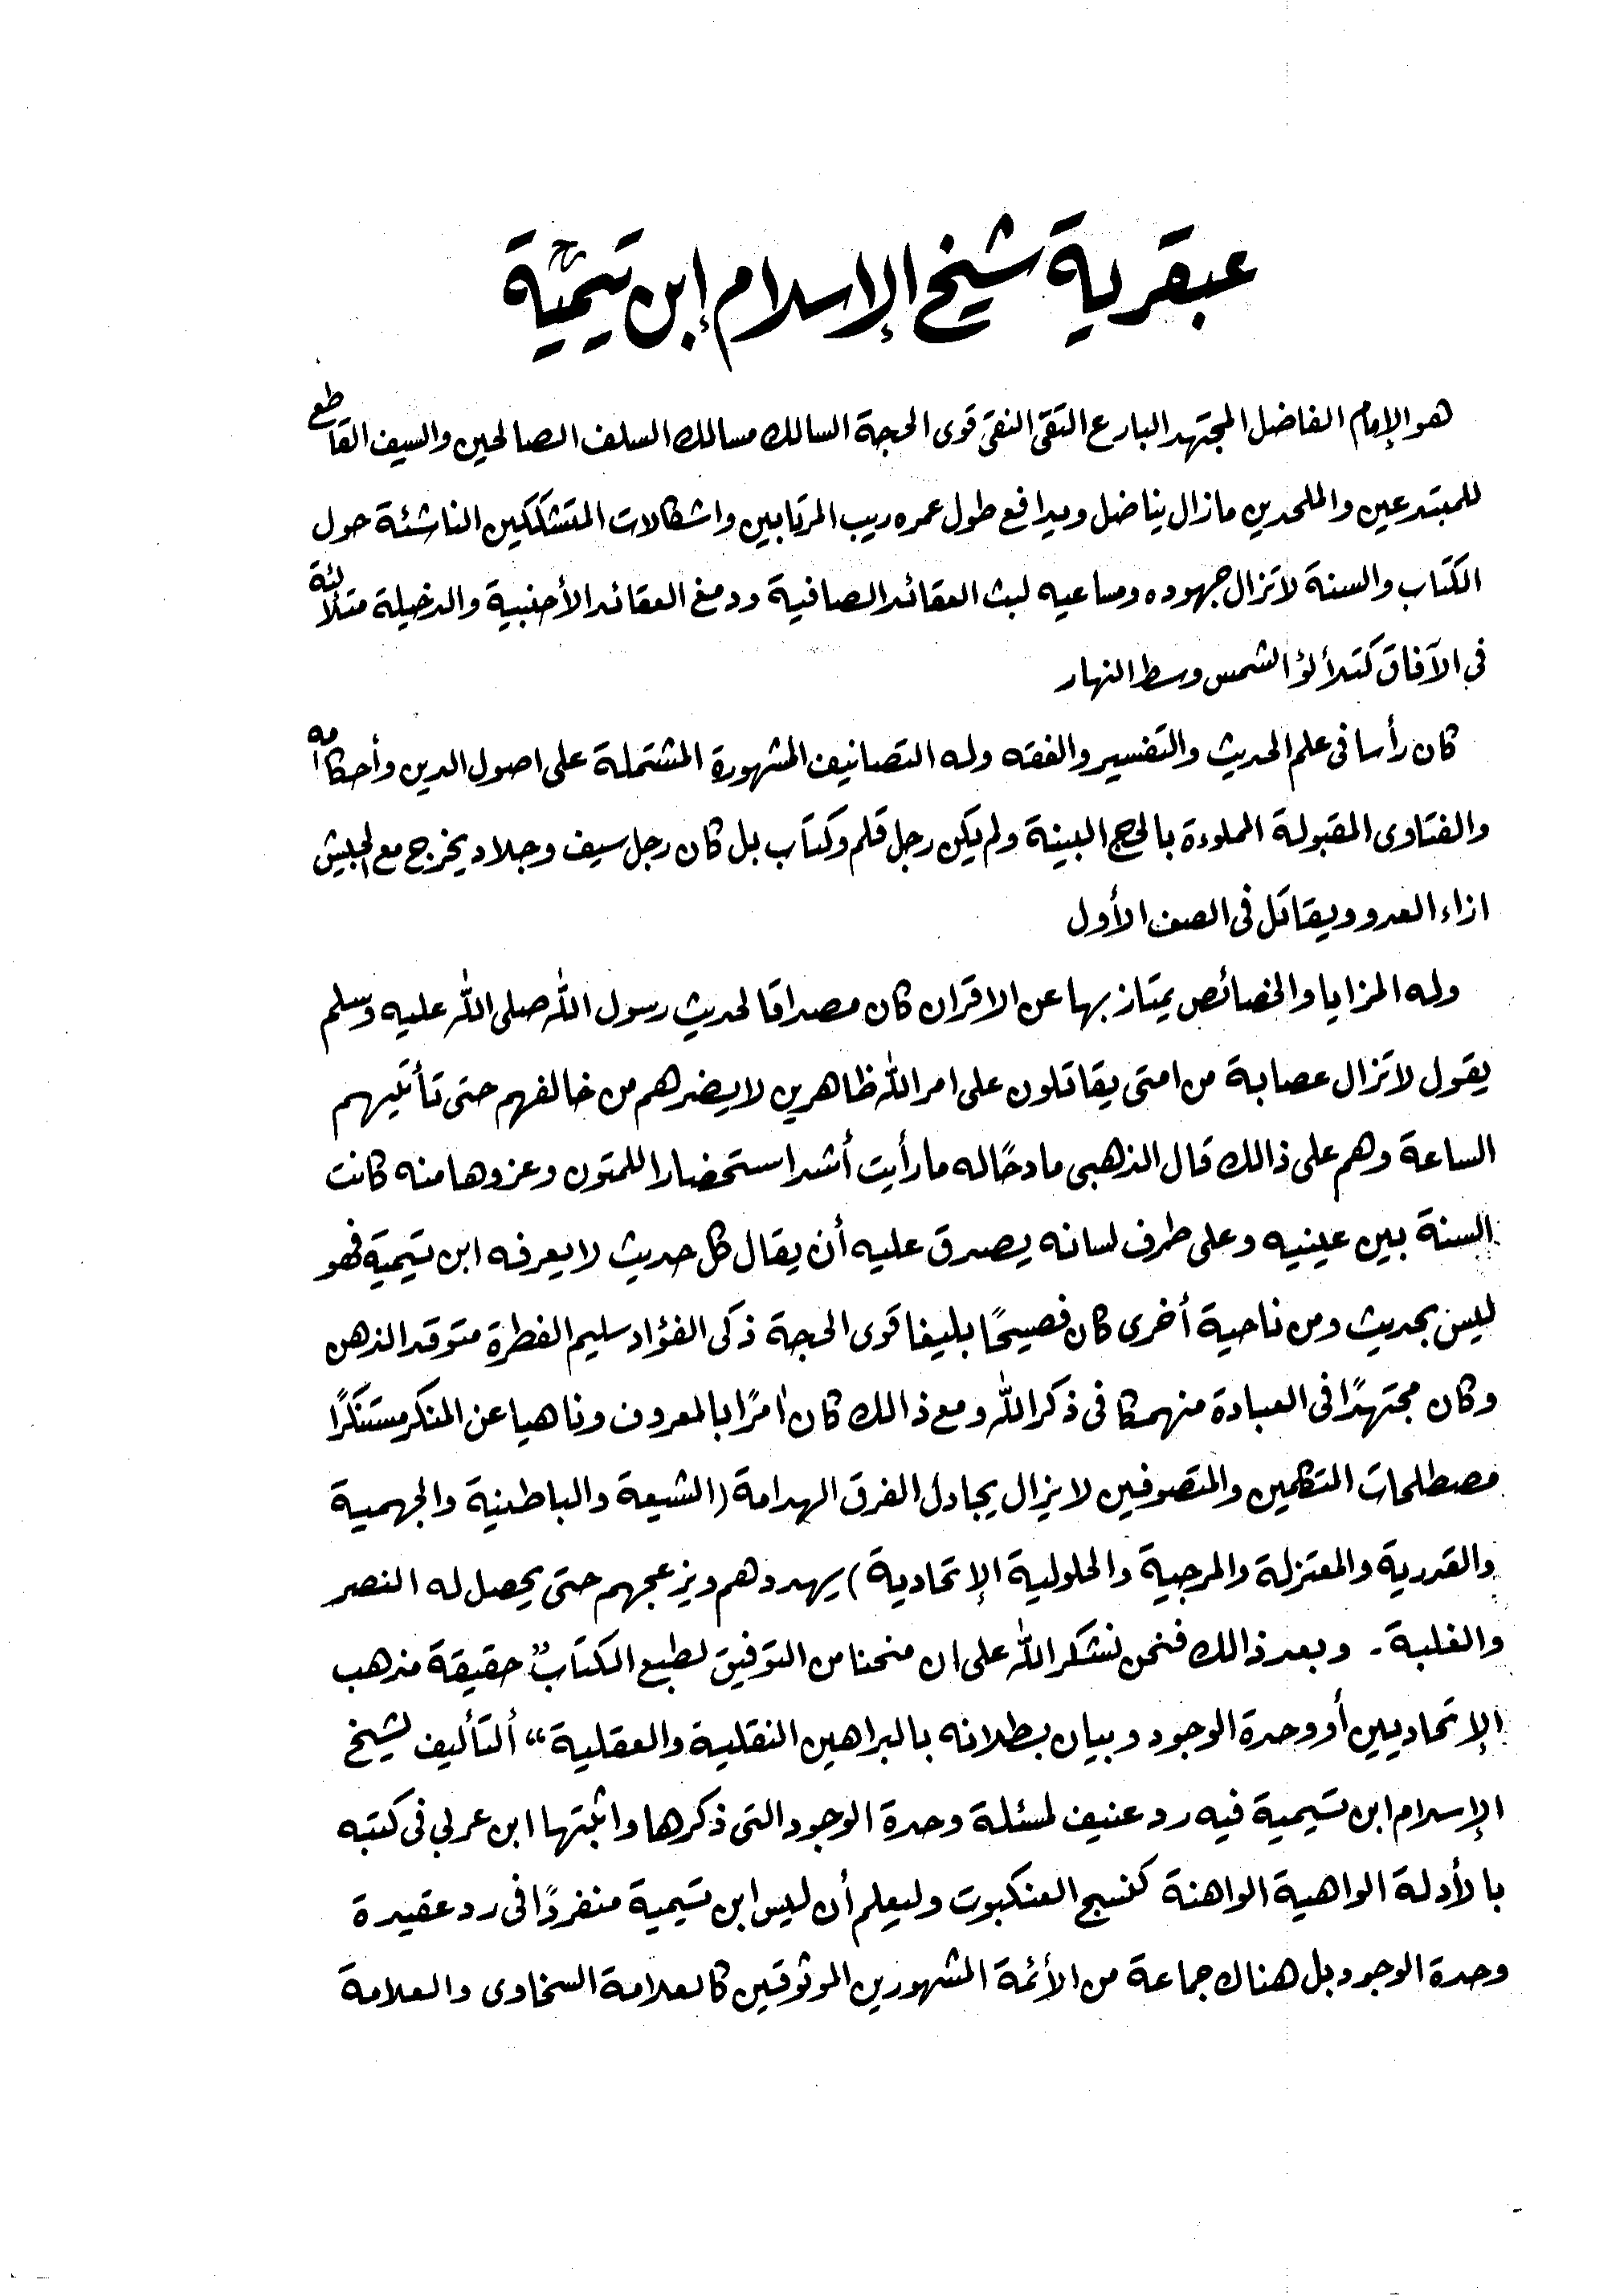 عبقرية شيخ الإسلام إبن تيميّة ؒ
هو الإمام الفاضل المجتهد البارع التقي النقي قوى الحجة السالك مسالك السلف الصالحين والسيف القاطع
للمبتدعين والملحدين مازال يناضل ويدافع طول عمره ريب المرتابين واشكالات المتشككين الناشئة حول
الكتاب والسنة لاتزال جهوده ومساعيه لبث العقائد الصافية ودمغ العقائد الأجنبية والدخيلة متلألئة
في الآفاق كتلألؤ الشمس وسط النهار
كان رأسا فى علم الحديث والتفسير والفقه وله التصانيف المشهورة المشتملة على اصول الدين وأحكامه
والفتاوى المقبولة المملوءة بالحجج البينة ولم يكن رجل قلم وكتاب بل كان رجل سيف وجلاد يخرج مع الجيش
ازاء العدو ويقاتل فى الصف الأول
وله المزايا والخصائص يمتاز بها عن الاقران كان مصداقا لحديث رسول الله صلى الله عليه وسلم
يقول لاتزال عصابة من امتى يقاتلون على امر الله ظاهرين لايضرهم من خالفهم حتى تأتيهم
الساعة وهم على ذالك قال الذهبى مادحًا له ما رأيت أشد استحضارا للمتون وعزوها منه كانت
السنة بين عينيه وعلى طرف لسانه يصدق عليه أن يقال كل حديث لايعرفه ابن تيمية فهو
ليس بحديث ومن ناحية أخرى كان فصيحًا بليغا قوى الحجة ذكى الفؤاد سليم الفطرة متوقد الذهن
وكان مجتهدًا فى العبادة منهمكا فى ذكر الله ومع ذالك كان اٰمرًا بالمعروف وناهيا عن المنكر مستنكرًا
مصطلحات المتكلمين والمتصوفين لايزال يجادل الفرق الهدامة (الشيعة والباطنية والجهمية
والقدرية والمعتزلة والمرجية والحلولية الإتحادية) يهددهم ويزعجهم حتى يحصل له النصر
والغلبة۔ وبعد ذالك فنحن نشكر الله على ان منحنا من التوفيق لطبع الكتاب ”حقيقة مذهب
الإتحاديين أو وحدة الوجود وبيان بطلانه بالبراهين النقلية والعقلية“ ألتأليف لشيخ
الإسلام ابن تيمية فيه رد عنيف لمسئلة وحدة الوجود التى ذكرها واثبتها ابن عربي فى كتبه
بالأدلة الواهية الواهنة كنسج العنكبوت وليعلم أن ليس ابن تيمية منفردًا فى رد عقيدة
وحدة الوجود بل هناك جماعة من الأئمة المشهورين الموثوقين كالعلامة السخاوى والعلامة